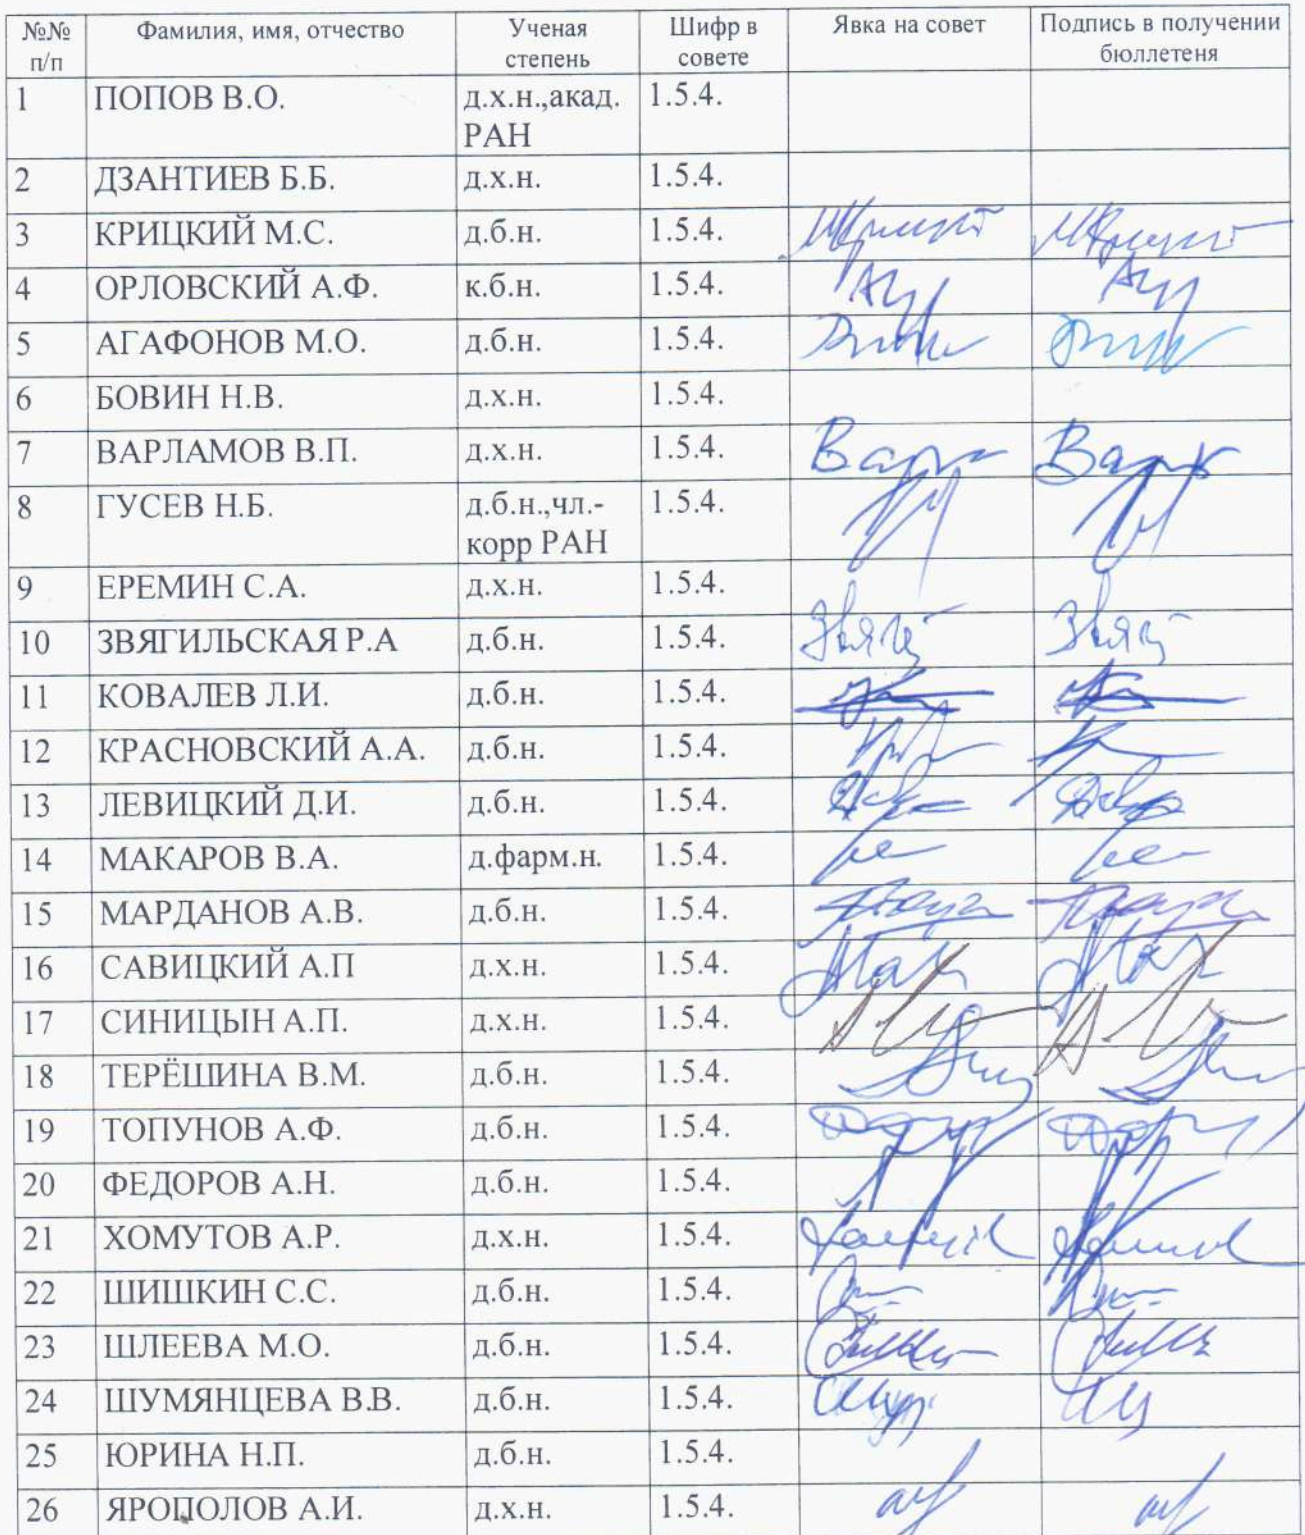 №№ п/п Фамилия, имя, отчество Ученая степень Шифр в совете Явка на совет Подпись в получении бюллетеня
1 ПОПОВ В.О. д.х.н.,акад. РАН 1.5.4.
2 ДЗАНТИЕВ Б.Б. д.х.н. 1.5.4.
3 КРИЦКИЙ М.С. д.б.н. 1.5.4.
4 ОРЛОВСКИЙ А.Ф. к.б.н. 1.5.4.
5 АГАФОНОВ М.О. д.б.н. 1.5.4.
6 БОВИН Н.В. д.х.н. 1.5.4.
7 ВАРЛАМОВ В.П. д.х.н. 1.5.4.
8 ГУСЕВ Н.Б. д.б.н.,чл.-корр РАН 1.5.4.
9 ЕРЕМИН С.А. д.х.н. 1.5.4.
10 ЗВЯГИЛЬСКАЯ Р.А д.б.н. 1.5.4.
11 КОВАЛЕВ Л.И. д.б.н. 1.5.4.
12 КРАСНОВСКИЙ А.А. д.б.н. 1.5.4.
13 ЛЕВИЦКИЙ Д.И. д.б.н. 1.5.4.
14 МАКАРОВ В.А. д.фарм.н. 1.5.4.
15 МАРДАНОВ А.В. д.б.н. 1.5.4.
16 САВИЦКИЙ А.П д.х.н. 1.5.4.
17 СИНИЦЫН А.П. д.х.н. 1.5.4.
18 ТЕРЁШИНА В.М. д.б.н. 1.5.4.
19 ТОПУНОВ А.Ф. д.б.н. 1.5.4.
20 ФЕДОРОВ А.Н. д.б.н. 1.5.4.
21 ХОМУТОВ А.Р. д.х.н. 1.5.4.
22 ШИШКИН С.С. д.б.н. 1.5.4.
23 ШЛЕЕВА М.О. д.б.н. 1.5.4.
24 ШУМЯНЦЕВА В.В. д.б.н. 1.5.4.
25 ЮРИНА Н.П. д.б.н. 1.5.4.
26 ЯРОПОЛОВ А.И. д.х.н. 1.5.4.